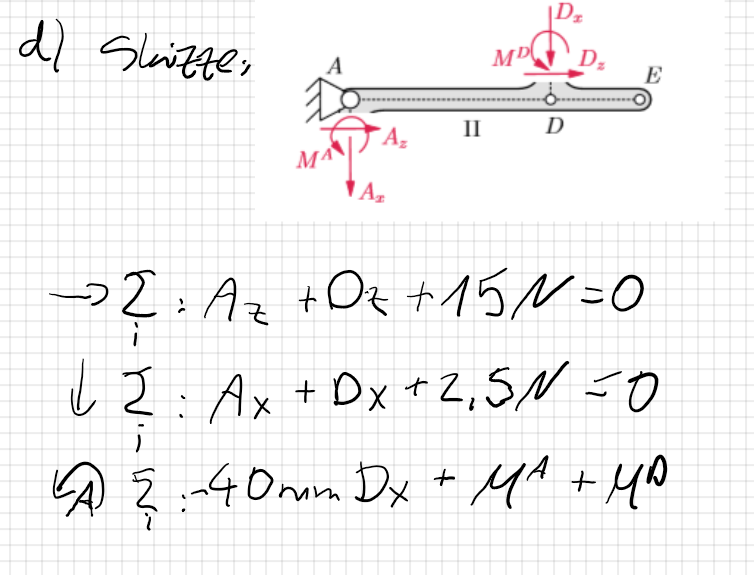 d) Skizze:
D_x
M^D
D_z
A
E
II
D
M^A
A_z
A_x
→ Σ_i : A_z + D_z + 15 N = 0
↓ Σ_i : A_x + D_x + 2,5 N = 0
↺A Σ_i : -40mm D_x + M^A + M^D